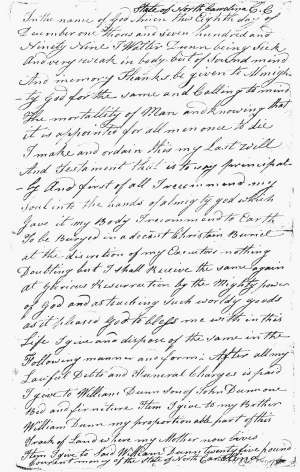 State of North Carolina C.C
In the name of god Amen this Eighth day of
December one thousand seven hundred and
Ninety Nine I Walter Dunn being Sick
And very weak in body but of Sound mind
And memory Thanks be given to Almigh-
-ty god for the same and Calling to mind
the mortallity of Man and knowing that
it is appointed for all men once to die
I make and ordain this my Last Will
And Testament that is to say principal-
-ly And first of all I recommend my
Soul into the hands of almigty god which
Gave it my Body I recommend to Earth
To be Buryed in a decent Christain Buriel
at the discretion of my Executors nothing
Doubting but I shall Receive the same again
at glorious Resurrection by the Mighty power
of God and as teaching such wordy goods
as it pleased God to bless me with in this
Life I give and dispose of the same in the
Following manner and form: After all my
Lawfull Debts and Funeral Charges is paid
I give to William Dunn son of John Dunn one
Bed and furniture Item I give to my Brother
William Dunn my proportionable part of this
Track of Land where my Mother now Lives
Item I give to Said William Dunn twenty five pound
Currant money of the State of North Carolina